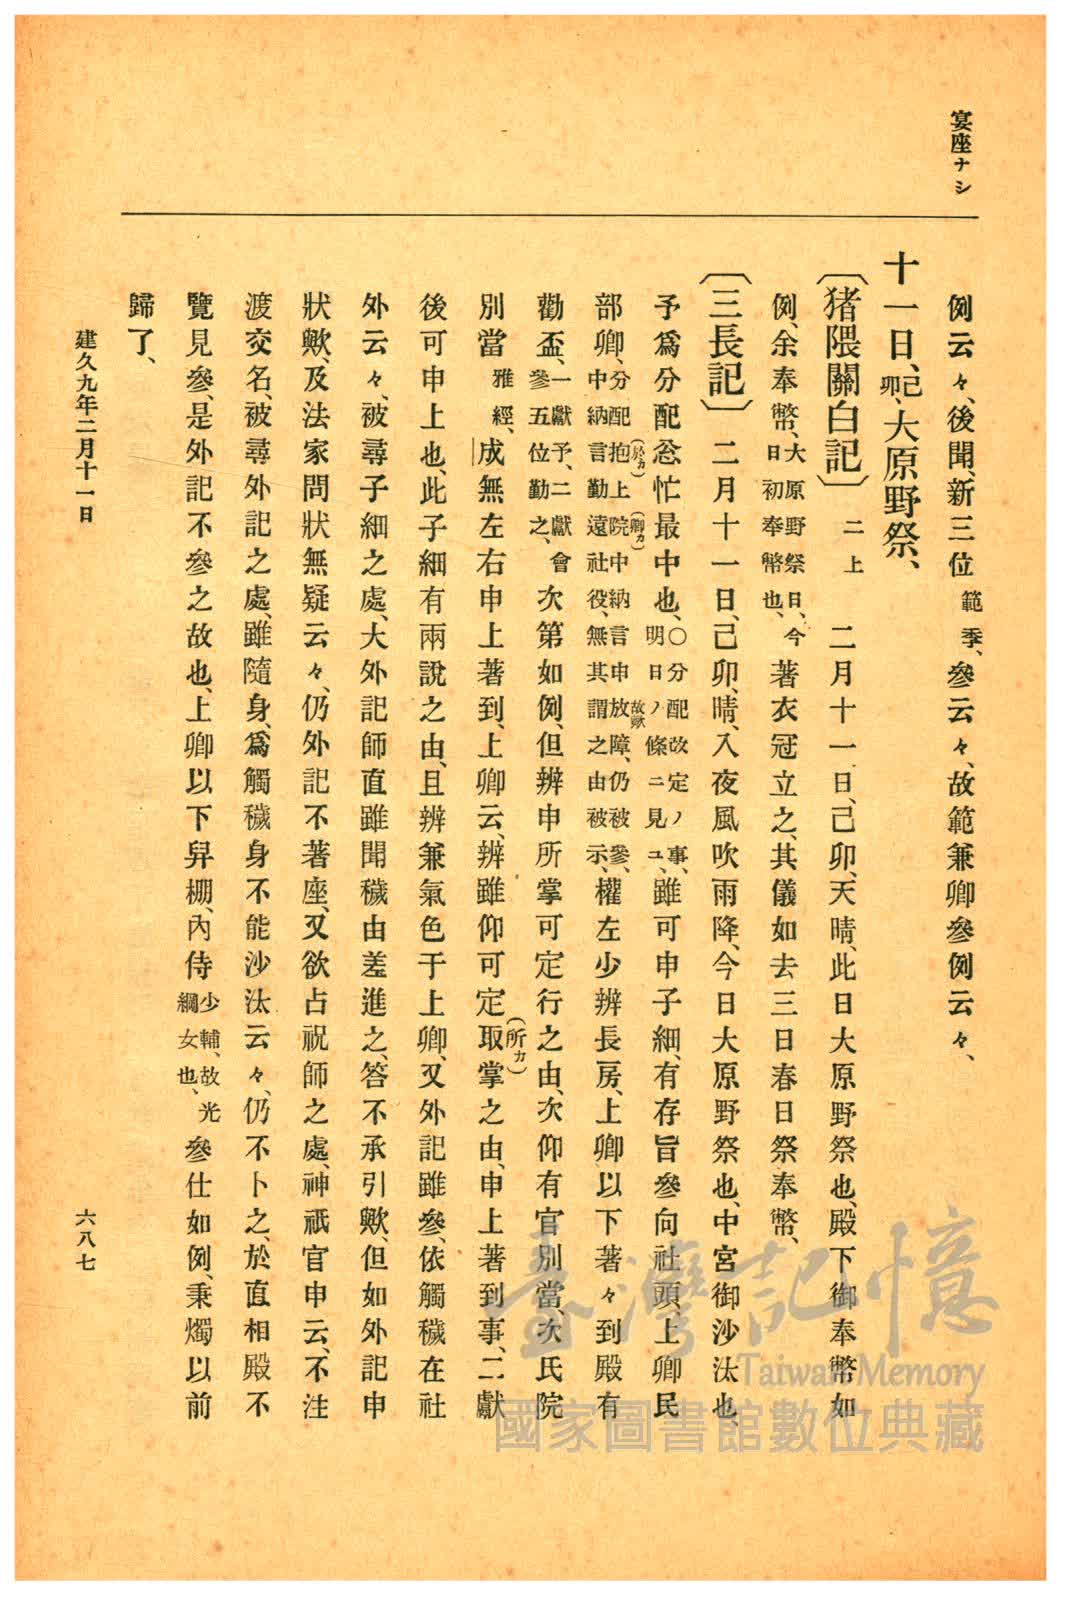 宴座ナシ
例云々、後聞、新三位範季、參云々、故範兼卿參例云々、
十一日、己卯、大原野祭、
〔猪隈關白記〕二上　二月十一日、己卯、天晴、此日大原野祭也、殿下御奉幣如
例、余奉幣、大原野祭日、今日初奉幣也、著衣冠立之、其儀如去三日春日祭奉幣、
〔三長記〕二月十一日、己卯、晴、入夜風吹雨降、今日大原野祭也、中宮御沙汰也、
予爲分配忩忙最中也、○分配改定ノ事、明日ノ條ニ見ユ、雖可申子細、有存旨參向社頭、上卿民
部卿、分配抱(於カ)上院(卿カ)中納言申放(故歟)障、仍被參、中納言勤遠社役、無其謂之由被示、權左少辨長房、上卿以下著々到殿有
勸盃、一獻予、二獻會參五位勤之、次第如例、但辨申所掌可定行之由、次仰有官別當、次氏院
別當雅經、成無左右申上著到、上卿云、辨雖仰可定取(所カ)掌之由、申上著到事、二獻
後可申上也、此子細有兩說之由、且辨兼氣色于上卿、又外記雖參、依觸穢在社
外云々、被尋子細之處、大外記師直雖聞穢由差進之、答不承引歟、但如外記申
狀歟、及法家問狀無疑云々、仍外記不著座、又欲占祝師之處、神祇官申云、不注
渡交名、被尋外記之處、雖隨身、爲觸穢身不能沙汰云々、仍不卜之、於直相殿不
覽見參、是外記不參之故也、上卿以下舁棚、內侍少輔、故光綱女也、參仕如例、秉燭以前
歸了、
建久九年二月十一日
六八七
臺灣記憶
Taiwan Memory
國家圖書館數位典藏